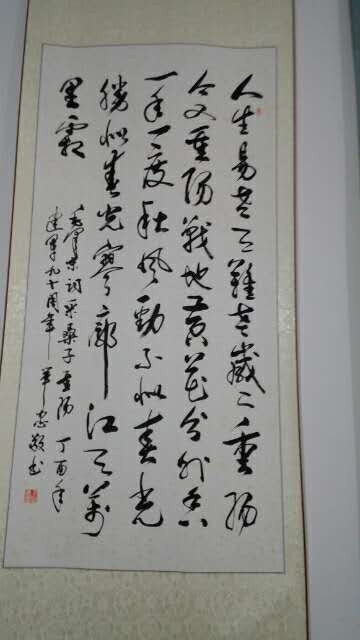 人生易老天難老歲々重陽
今又重陽戰地黄花分外香
一年一度秋風勁不似春光
勝似春光寥廓江天萬
里霜
毛澤東詞采桑子重陽 丁酉年
建軍九十周年 忠敬书